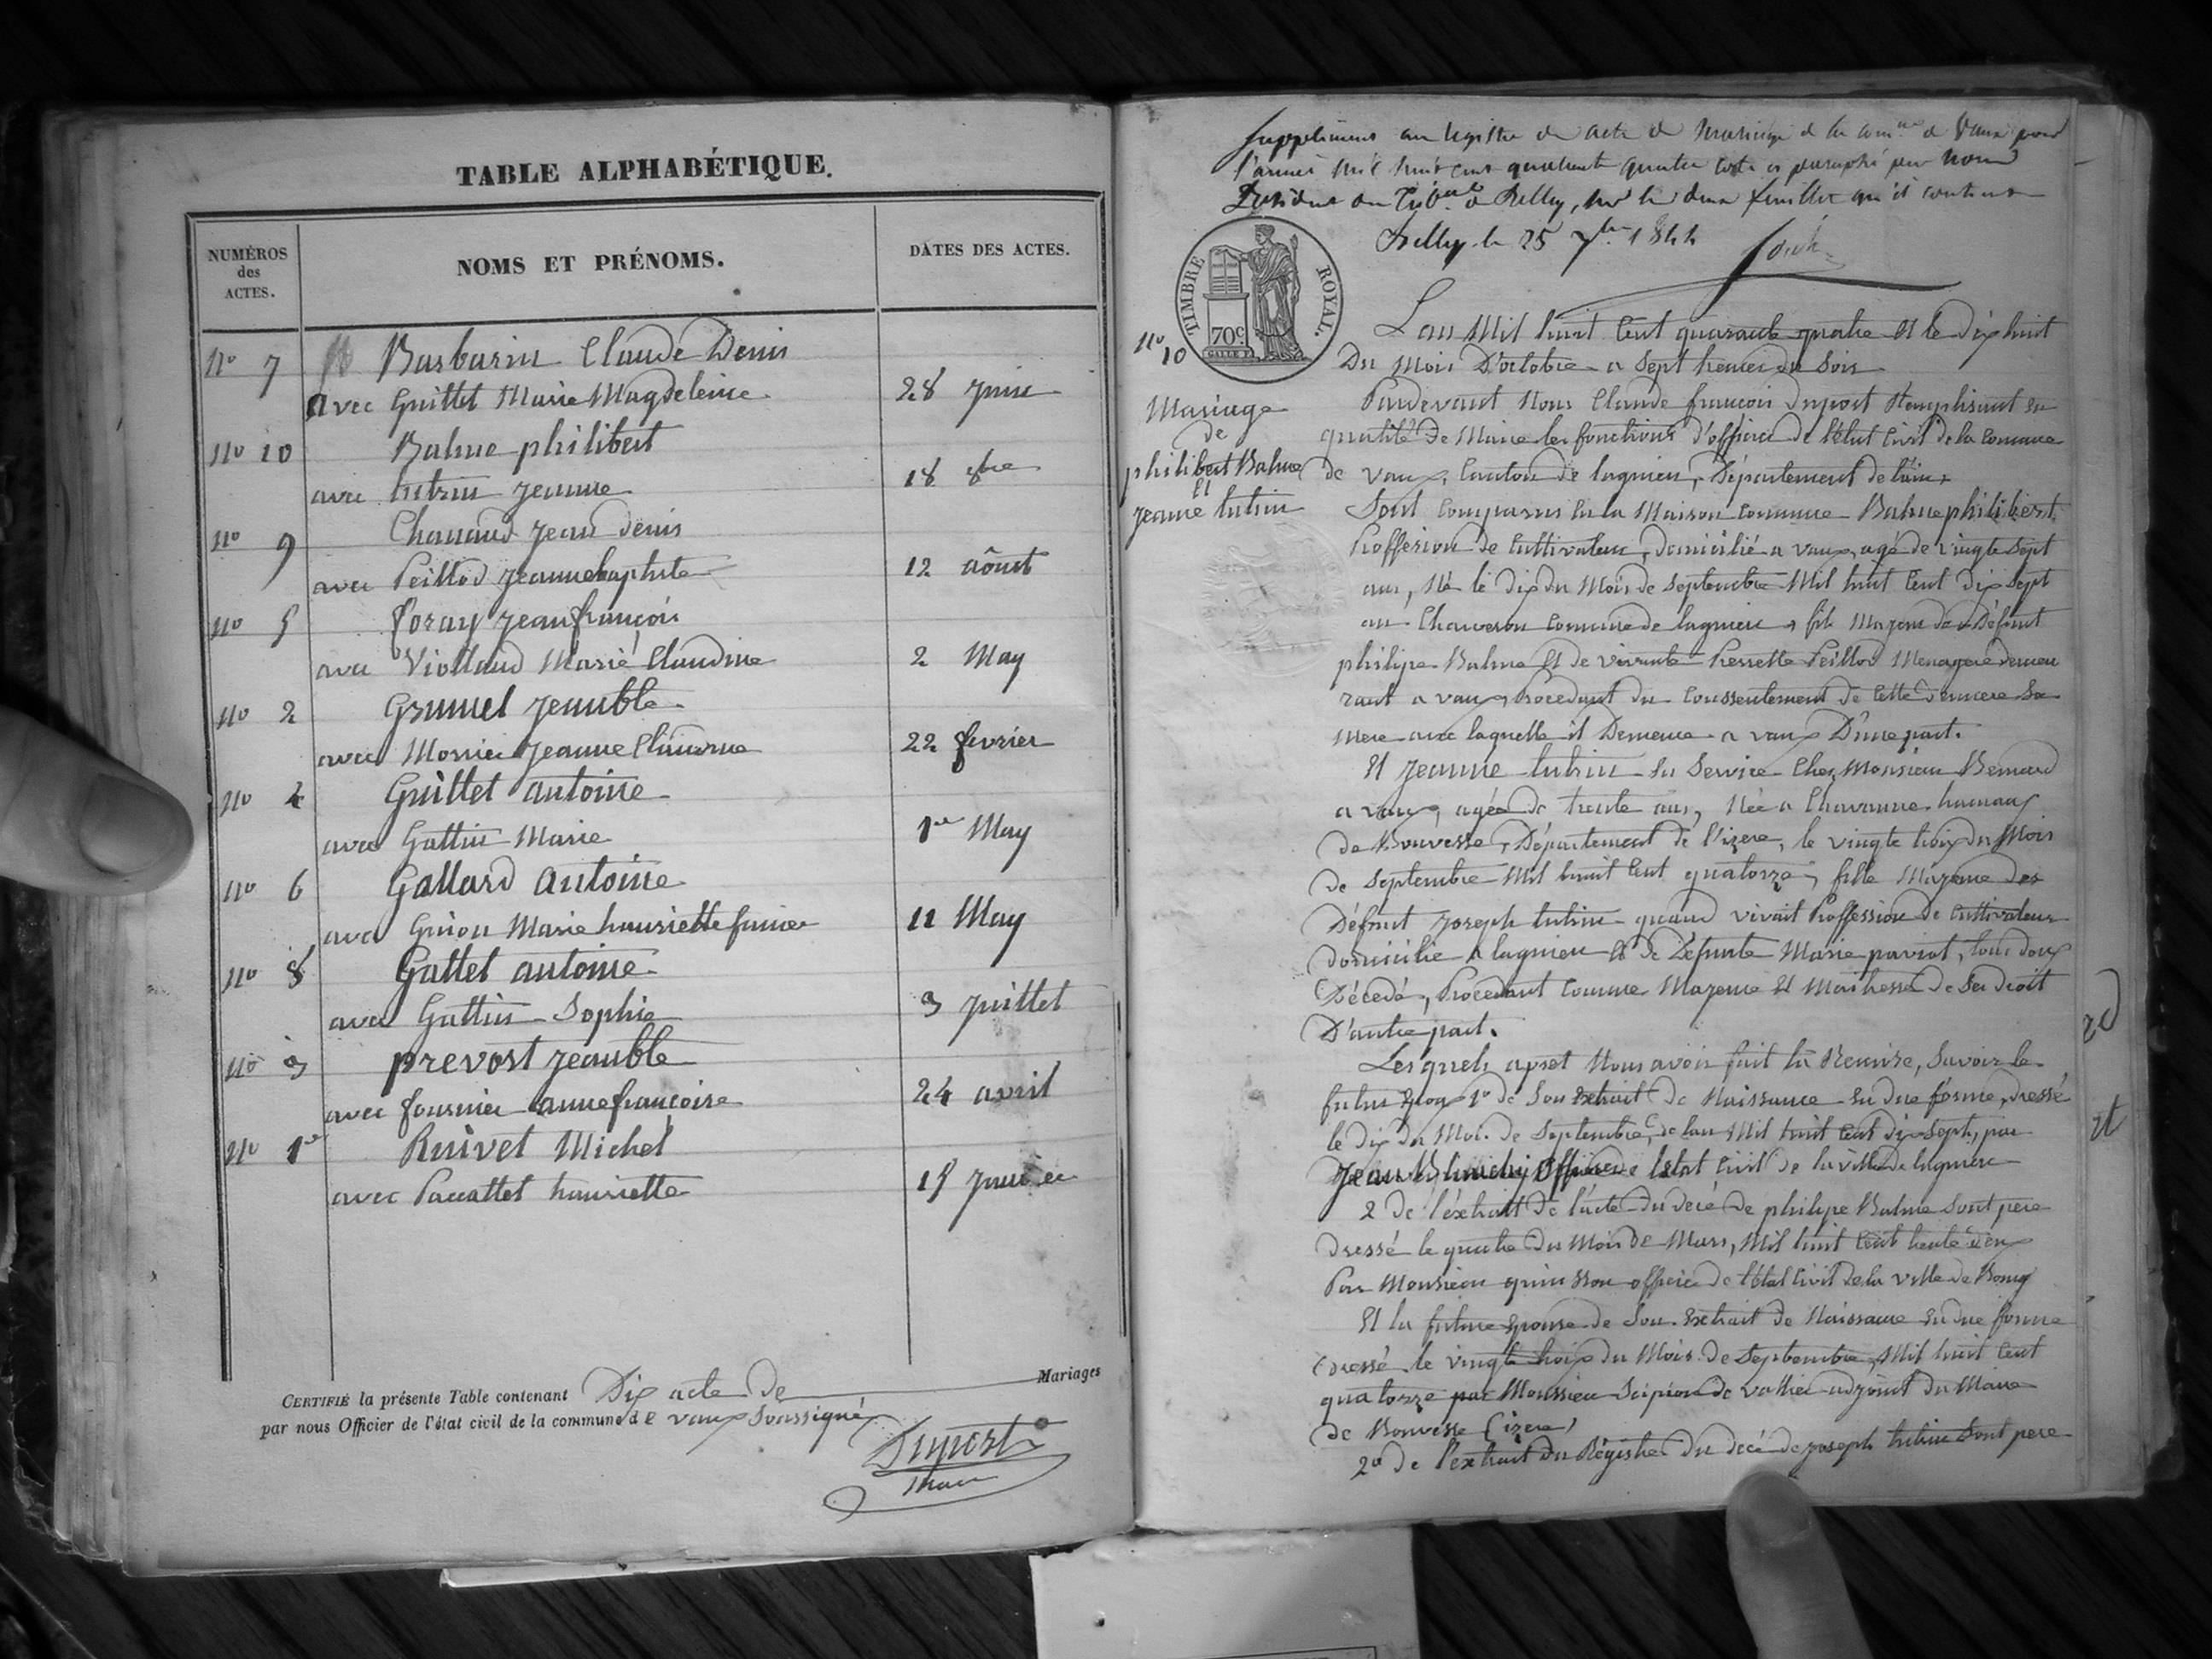 TABLE ALPHABÉTIQUE.
NUMÉROS
des
ACTES.
NOMS ET PRÉNOMS.
DATES DES ACTES.
No 7 Barbarin Claude Denis
avec Guittet Marie Magdeleine 28 Juin
No 10 Balme philibert
avec Jeanne 18 8bre
No 9 Chanaud Jean denis
avec Peillod Jeanne baptiste 12 aôust
No 5 foray Jean françois
avec Viollaud Marie Claudine 2 May
No 2 Grumel Jeanbte
avec Jeanne 22 fevrier
No 4 Guittet antoine
avec Gattin Marie 1er May
No 6 Gallard antoine
avec Guion Marie hanriette 11 May
No 8 Gattet antoine
avec Gattin Sophie 3 Juillet
No 3 prevost Jeanbte
avec fournier anne françoise 24 avril
No 1er Ruivet Michel
avec Paccattet hanriette 15 Janvier
CERTIFIÉ la présente Table contenant Dix acte de Mariages
par nous Officier de l'état civil de la commune de vaux Soussigné
Dupost
Maire
Supplément au registre de acte de Mariage de la comne de Vaux pour
l'année mil huit cent quarante quatre coté et paraphé par nous
Président du Tribal de Belley, sur les deux feuillets qu'il contient
Belley le 25 7bre 1844
TIMBRE ROYAL.
70c
No 10
Mariage
de
philibert Balme
et
Jeanne lutrin
L'an Mil huit Cent quarante quatre et le dix huit
Du Mois D'octobre a Sept heures du Soir
Pardevant Nous Claude françois Dupost Remplisant en
qualité de Maire les fonctions d'officier de l'état Civil de la Comune
de vaux, Canton de lagnieu, Département de l'ain,
Sont Comparus en la Maison Commune Balme philibert
Proffesion de Cultivateur, domicilié a vaux, agé de vingte Sept
ans, Né le dix du Mois de Septembre Mil huit Cent Dix Sept
au Chaveron Commune de lagnieu, fils Mazeur de Défunt
philipe Balme et de vivante Pierrette Peillod Menagere demeu
rant a vaux, Procedant du Conssentement de Cette derniere Sa
Mere avec laquelle il Demeure a vaux D'une part.
Et Jeanne lutrin en Service Chez Monsieur Bernard
a vaux, agée de trente ans, Née a Chavanne hameau
de Bouvesse, Département de l'izere, le vingte trois du Mois
de Septembre Mil huit Cent quatorze, fille Mazeure des
Défunt Joseph lutrin quand vivait Proffession de Cultivateur
domicilié a lagnieu et de Défunte Marie paviot, tous deux
Décedé, Procedant Comme Mazeure et Maitresse de Ses droit
D'autre part.
Lesquels apret Nous avoir fait la Remise, Savoir le
futur Epoux 1º de Son Extrait de Naissance en due forme, dressé
le dix du Mois de Septembre, de l'an Mil huit Cent dix Sept, par
Jean Officier de l'état Civil de la ville de lagnieu
2 de l'éxtrait de l'acte du decé de philipe Balme Sont pere
Dressé le quatre du Mois de Mars, Mil huit Cent trente deux
Par Monsieur officier de l'état Civil de la ville de Bourg
Et la future Epouse de Son Extrait de Naissance en due forme
dressé le vingte trois du Mois de Septembre, Mil huit Cent
quatorze par Monssieu Scipion de vallier adjoint du Maire
de Bouvesse (izere)
2º de l'extrait du Régistre du decé de Joseph lutrin Sont pere